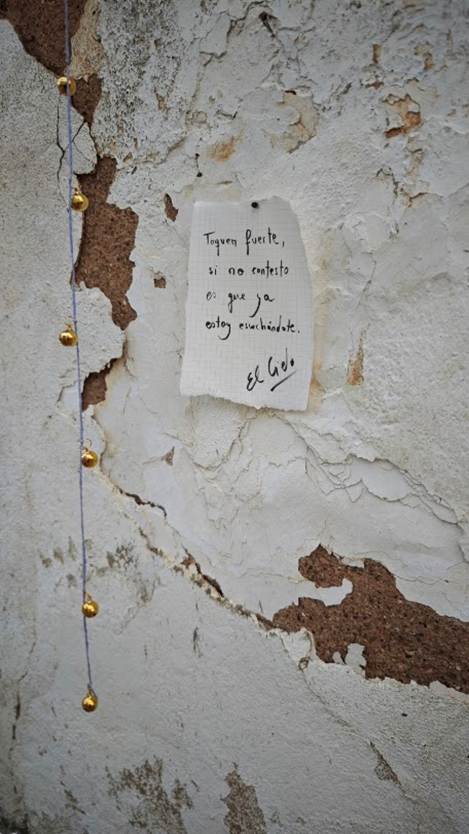 Toquen fuerte,
si no contesto
es que ya
estoy escuchándote.
El Cielo